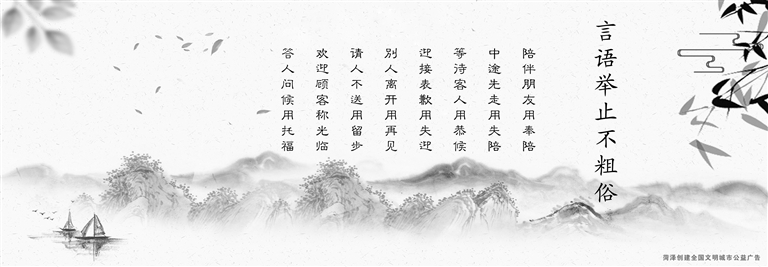 言语举止不粗俗
陪伴朋友用奉陪
中途先走用失陪
等待客人用恭候
迎接表歉用失迎
别人离开用再见
请人不送用留步
欢迎顾客称光临
答人问候用托福
菏泽创建全国文明城市公益广告